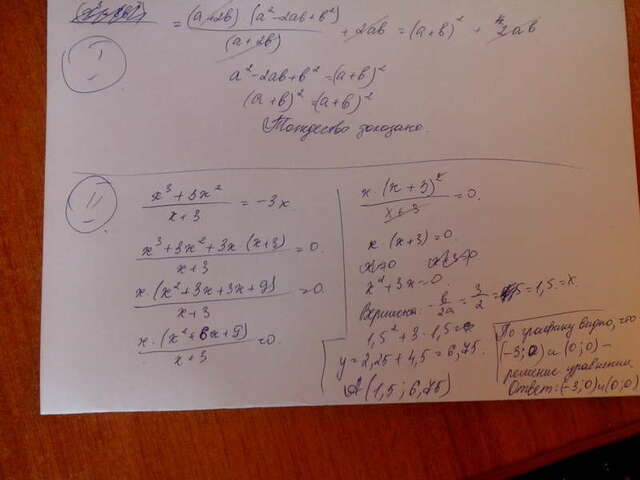 = (a+2b) (a²-2ab+b²) / (a+2b) + 2ab = (a+b)² + 2ab
I
a²-2ab+b² = (a+b)²
(a+b)² = (a+b)²
Тождество доказано.
II
x³+3x² / x+3 = -3x
x³+3x²+3x (x+3) / x+3 = 0.
x·(x²+3x+3x+9) / x+3 = 0
x·(x²+6x+9) / x+3 = 0
x·(x+3)² / x+3 = 0.
x·(x+3)=0.
x²+3x=0.
Вершина: -b/2a = 3/2 = 1,5 = x.
1,5²+3·1,5=
y=2,25+4,5=6,75.
A (1,5; 6,75)
По графику видно, что
(-3;0) и (0;0) -
решение уравнения
Ответ: (-3;0) и (0;0)